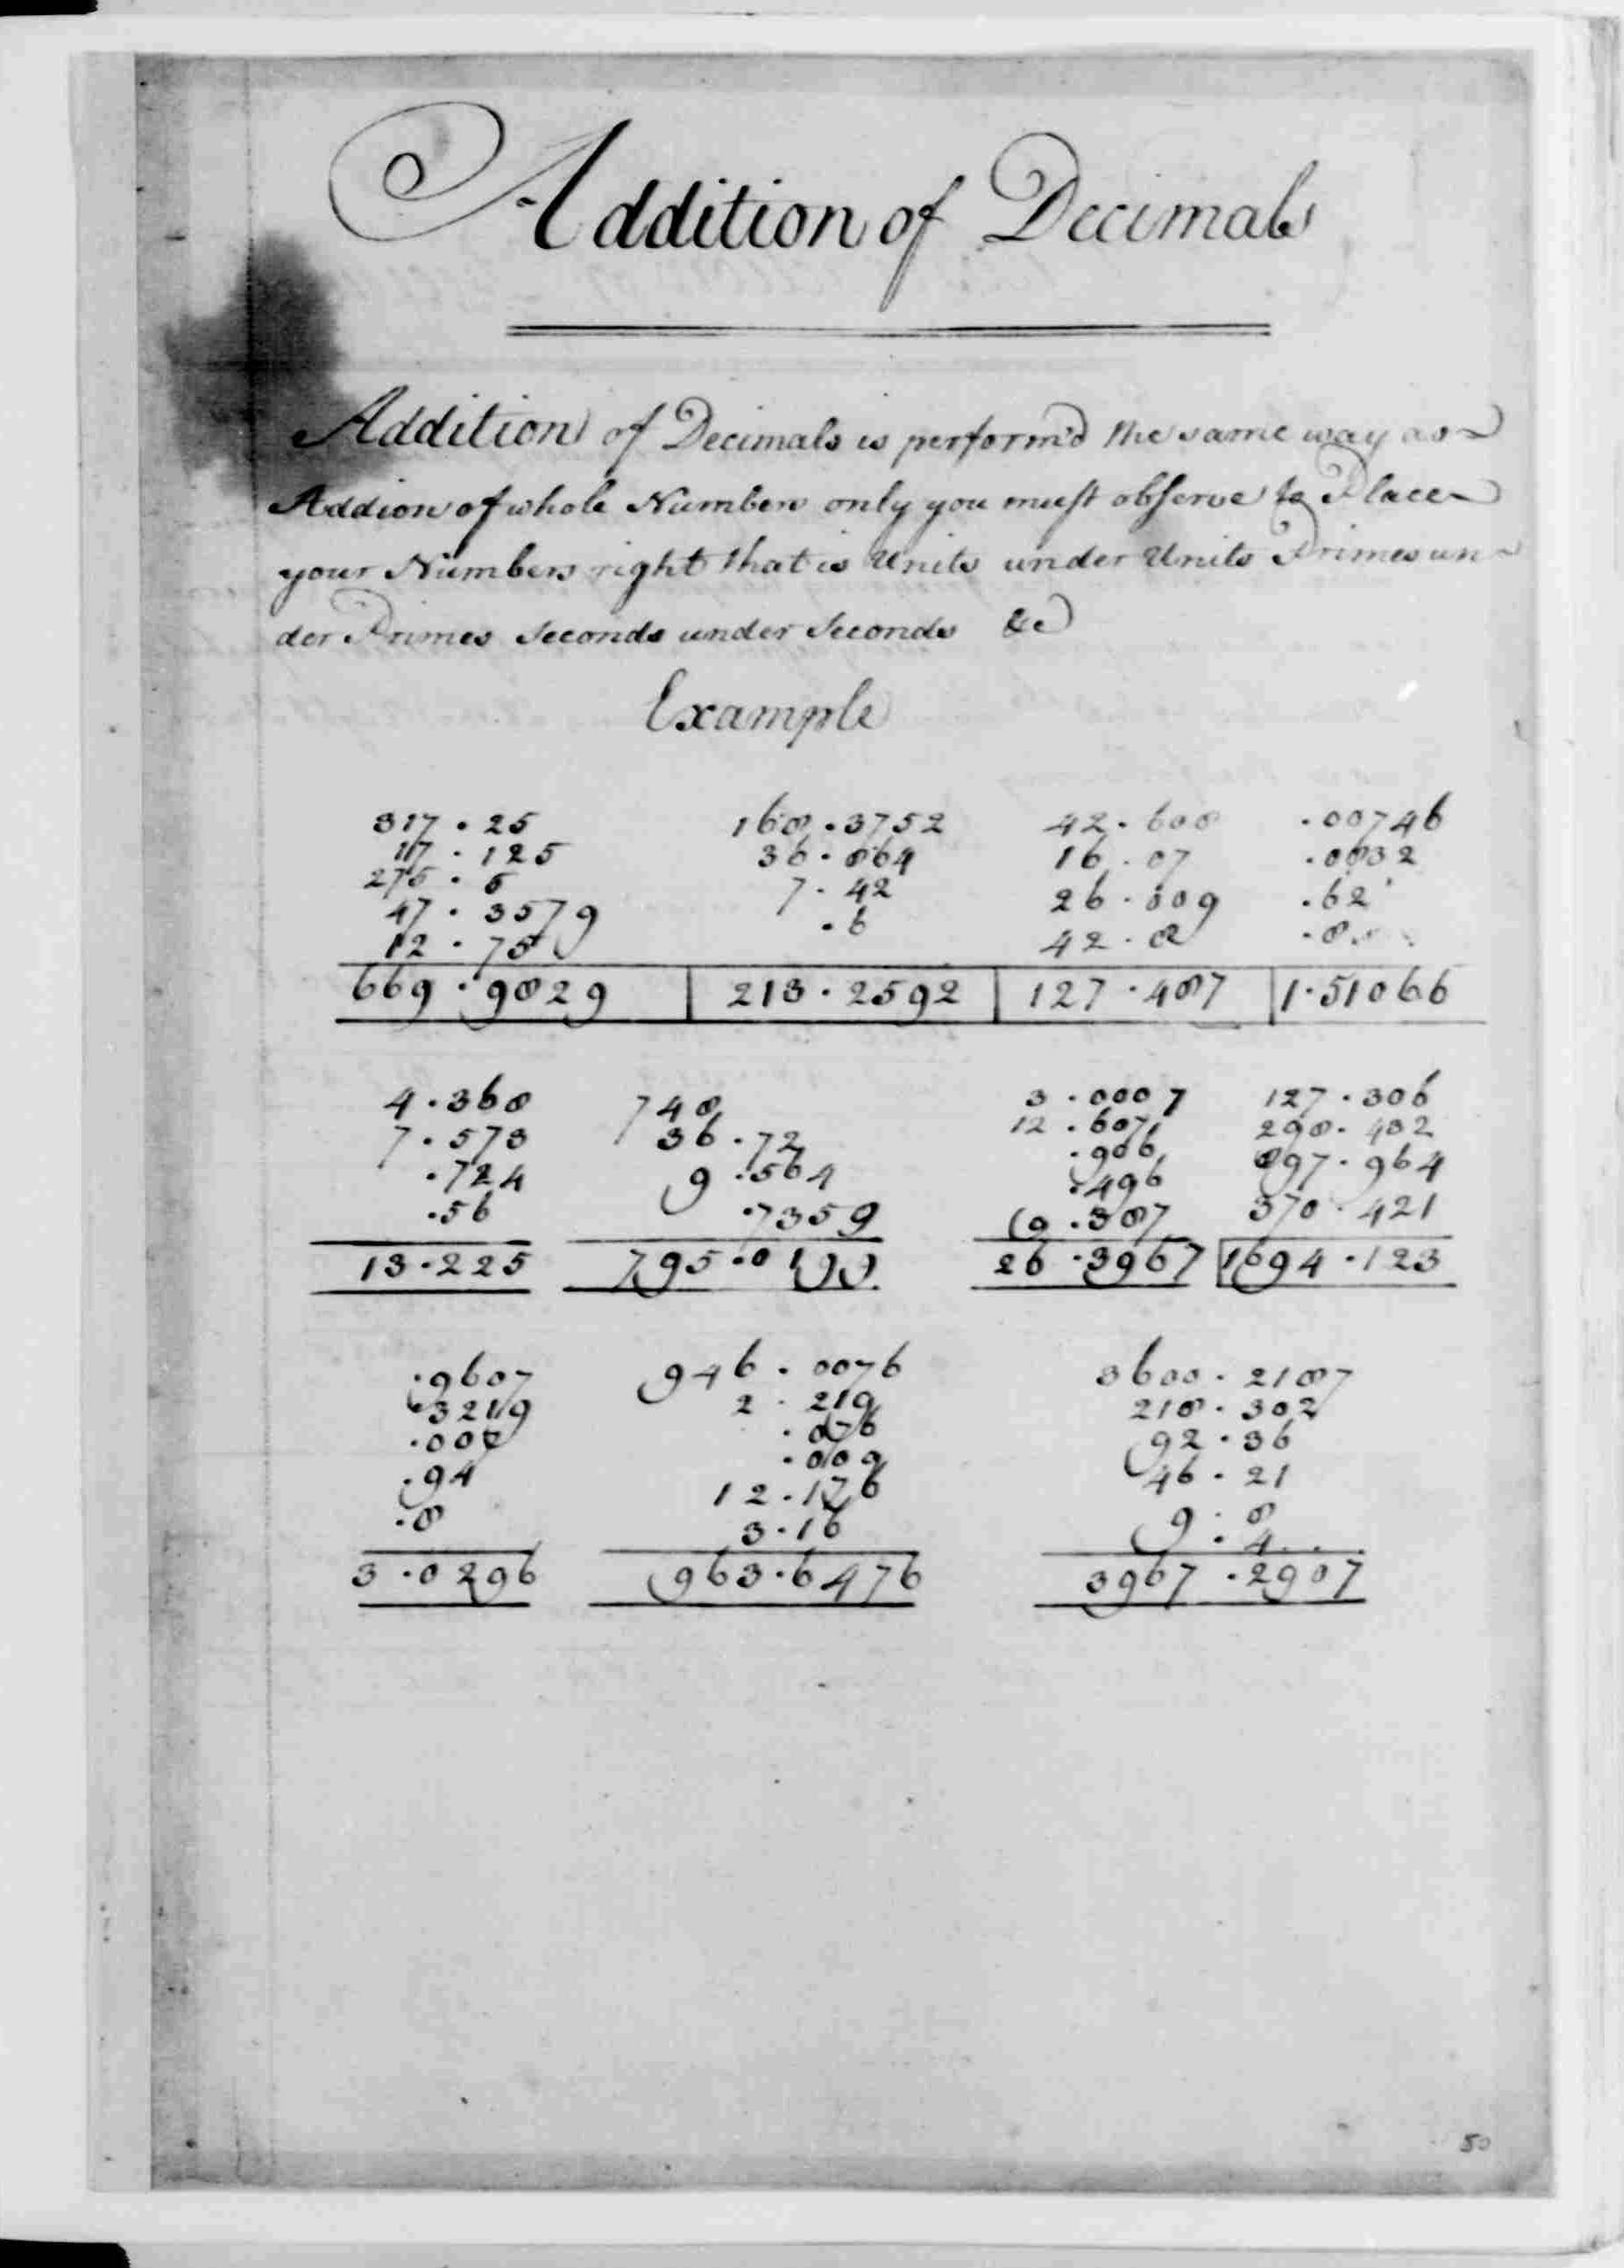 Addition of Decimals
Addition of Decimals is perform'd the same way as
Addion of whole Numbers only you must observe to Place
your Numbers right that is Units under Units Primes un
der Primes Seconds under Seconds &c
Example
317.25 168.3752 42.608 .00746
17.125 36.864 16.07 .0832
275.5 7.42 26.009 .62
47.3579 .6 42.8 .8
12.75
669.9829 213.2592 127.487 1.51066
4.368 748 3.0007 127.306
7.573 36.72 12.607 298.432
.724 9.564 .906 897.964
.56 .7359 .496 370.421
9.387
13.225 795.0199 26.3967 1694.123
.9607 946.0076 3600.2187
.3219 2.219 218.302
.007 .076 92.36
.94 .009 46.21
.8 12.176 9.8
3.16 .4
3.0296 963.6476 3967.2907
50